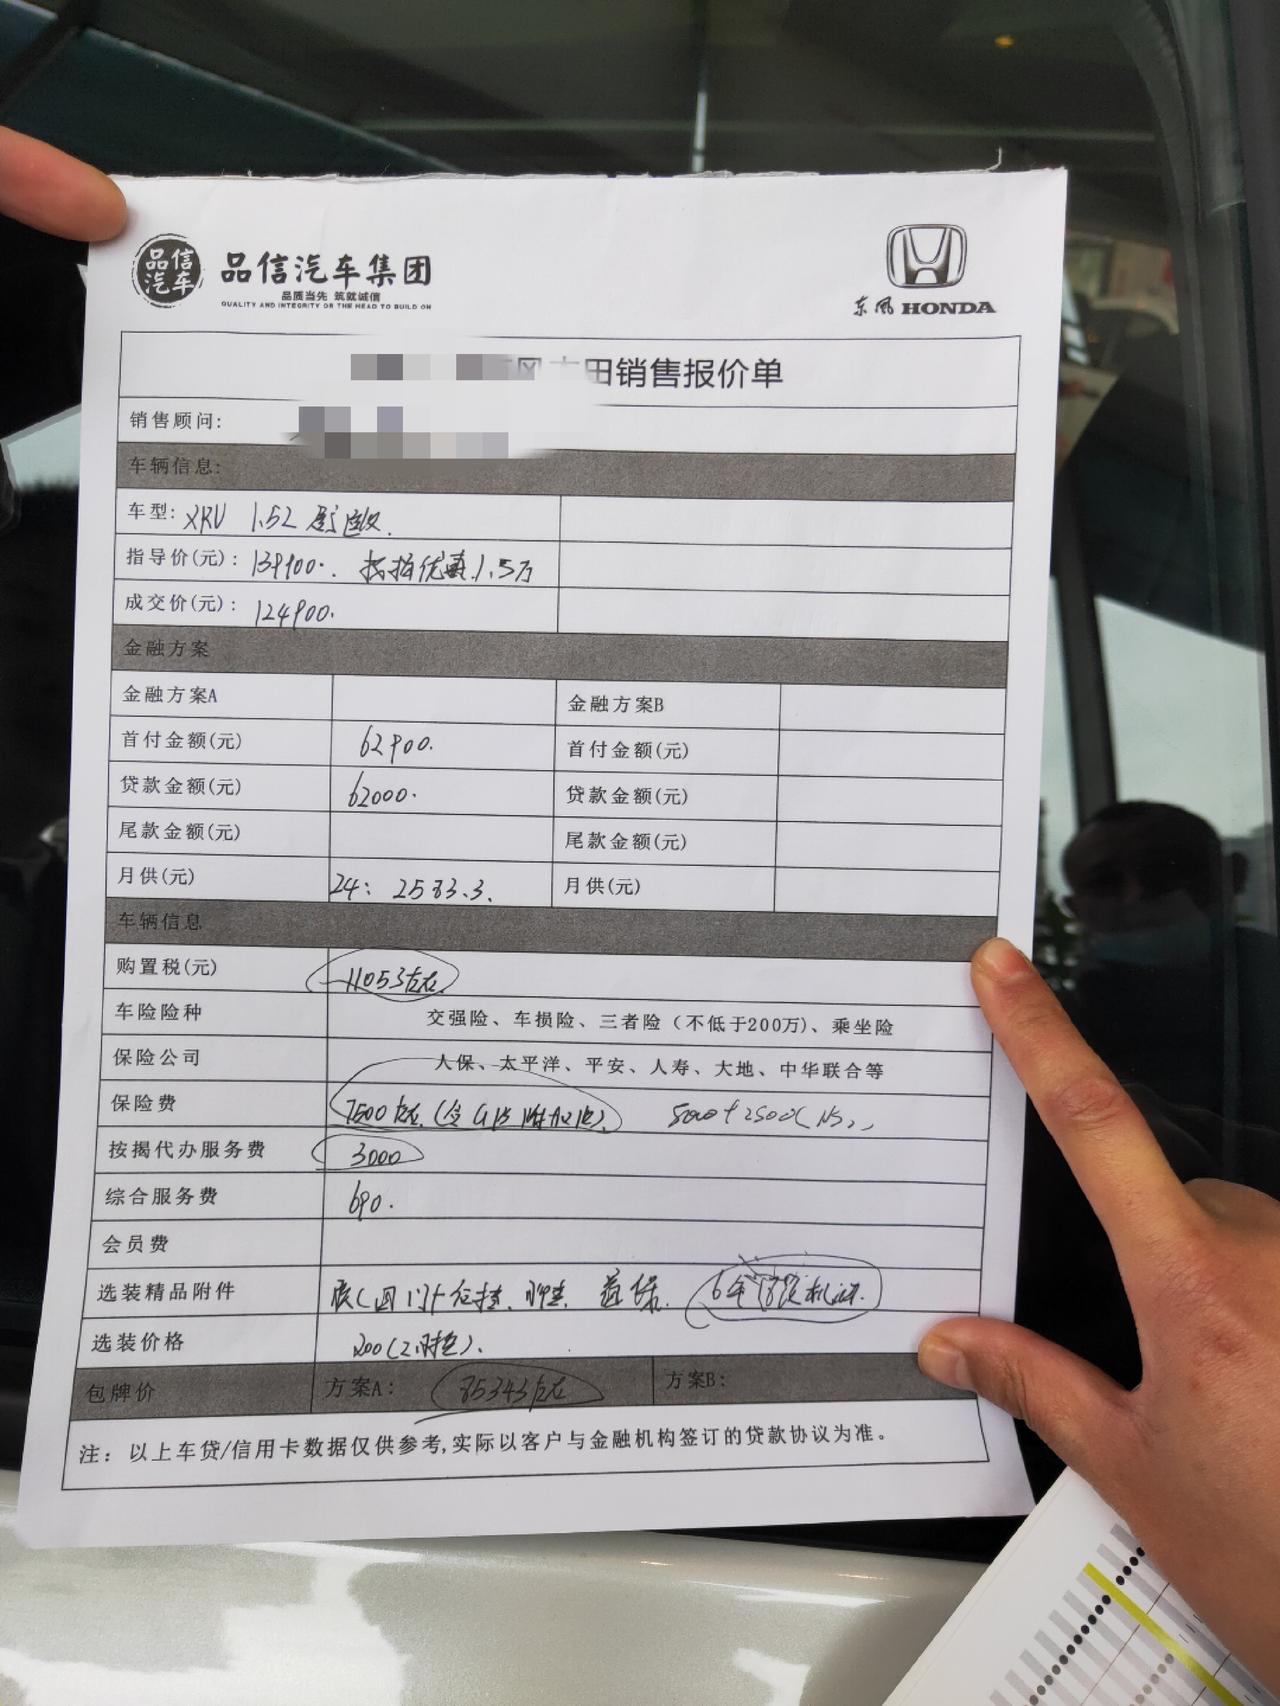 品信汽车
品信汽车集团
品质当先 筑就诚信
QUALITY AND INTEGRITY OR THE HEAD TO BUILD ON
东风 HONDA
田销售报价单
销售顾问:
车辆信息:
车型: XRV 1.5L
指导价(元): 139900. 按揭优惠1.5万
成交价(元): 124900.
金融方案
金融方案A 金融方案B
首付金额(元) 62900. 首付金额(元)
贷款金额(元) 62000. 贷款金额(元)
尾款金额(元) 尾款金额(元)
月供(元) 24: 2583.3. 月供(元)
车辆信息
购置税(元) 11053左右
车险险种 交强险、车损险、三者险（不低于200万)、乘坐险
保险公司 人保、太平洋、平安、人寿、大地、中华联合等
保险费 7500左右 5000+2500
按揭代办服务费 3000
综合服务费 690.
会员费
选装精品附件 6年
选装价格 200
包牌价 方案A: 85343左右 方案B:
注: 以上车贷/信用卡数据仅供参考,实际以客户与金融机构签订的贷款协议为准。